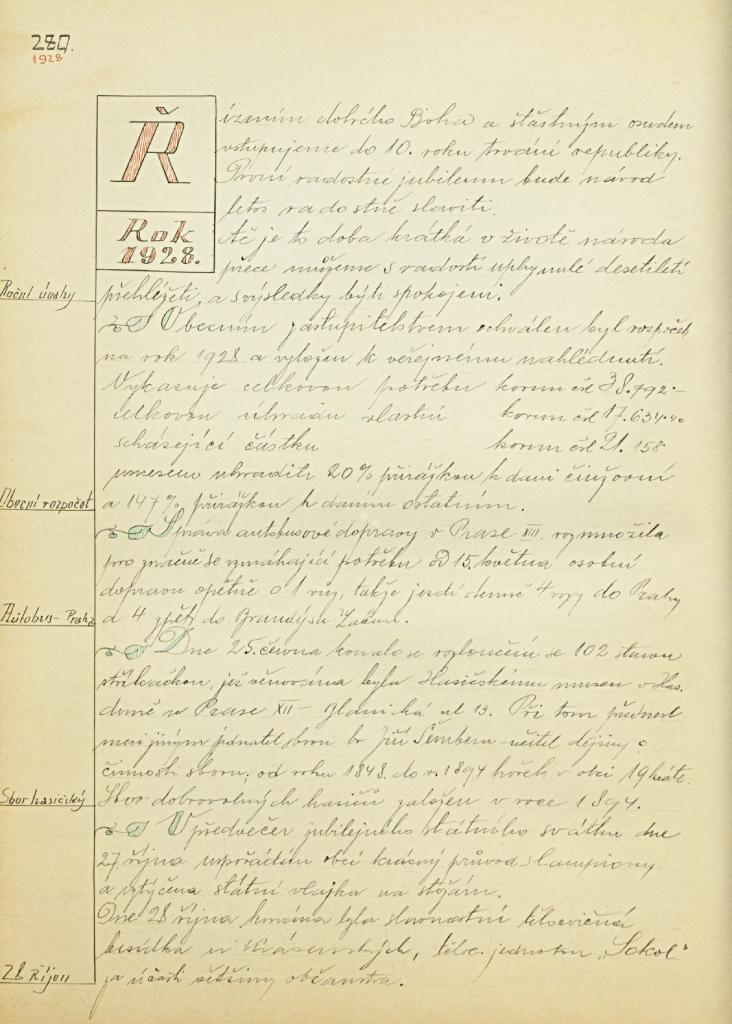 280.
1928
Ř
ízením dobrého Boha a šťastným osudem
vstupujeme do 10. roku trvání republiky.
První radostné jubileum bude národ
letos radostně slaviti.
Rok
1928.
Ač je to doba krátká v životě národa
přece můžeme s radostí uplynulé desetiletí
Roční úvahy
přehlížeti, a s výsledky býti spokojeni.
Obecním zastupitelstvem schválen byl rozpočet
na rok 1928 a vyložen k veřejnému nahlédnutí.
Vykazuje celkovou potřebu korun čsl 38.792.-
celkovou úhradu vlastní korun čsl 17.634.40
scházející částku korun čsl 21.158
usneseno uhraditi 20% přirážkou k dani činžovní
Obecní rozpočet
a 147% přirážkou k daním ostatním.
Správa autobusové dopravy v Praze XIII. rozmnožila
pro značně se vzmáhající potřebu od 15. května osobní
dopravu opětně o 1 vůz, takže jezdí denně 4 vozy do Prahy
Autobus - Praha
a 4 zpět do Brandýsa
Dne 25. června konalo se rozloučení se 102 starou
stříkačkou, jež věnována byla Hasičskému museu v Has.
domě v Praze XII - ul 13. Při tom přednesl
mezi jiným jednatel sboru br Jiří Šembera - učitel dějiny o
činnosti sboru; od roku 1848. do r. 1894 hořelo v obci 19 kráte.
Sbor hasičský
Sbor dobrovolných hasičů založen v roce 1894.
V předvečer jubilejního státního svátku dne
27. října uspořádán obcí krásný průvod s lampiony
a vztyčena státní vlajka na stožáru.
Dne 28 října konána byla slavnostní tělocvičná
besídka u, těloc. jednotou „Sokol"
28 Říjen
za účasti většiny občanstva.